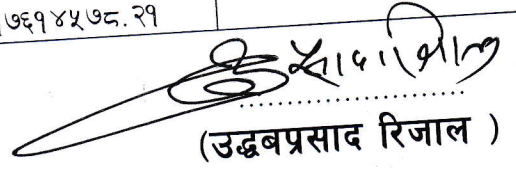 ७६१४५७८.२१
(उद्धबप्रसाद रिजाल )